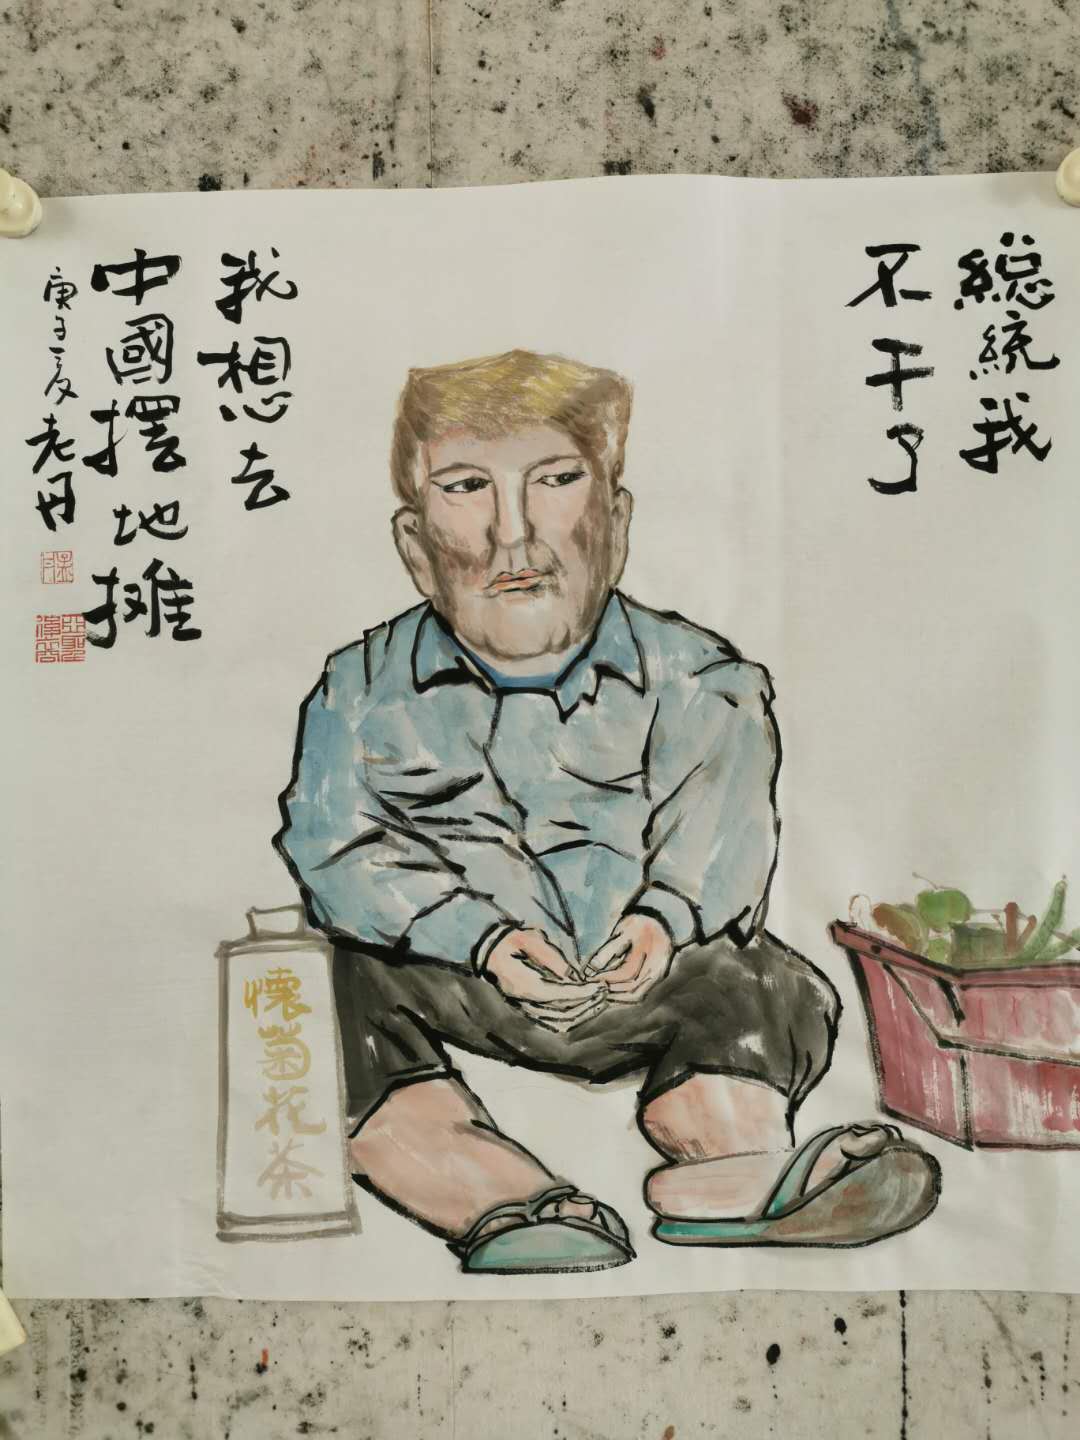 總統我
不干了
我想去
中國擺地攤
庚子夏老丹
懷菊花茶